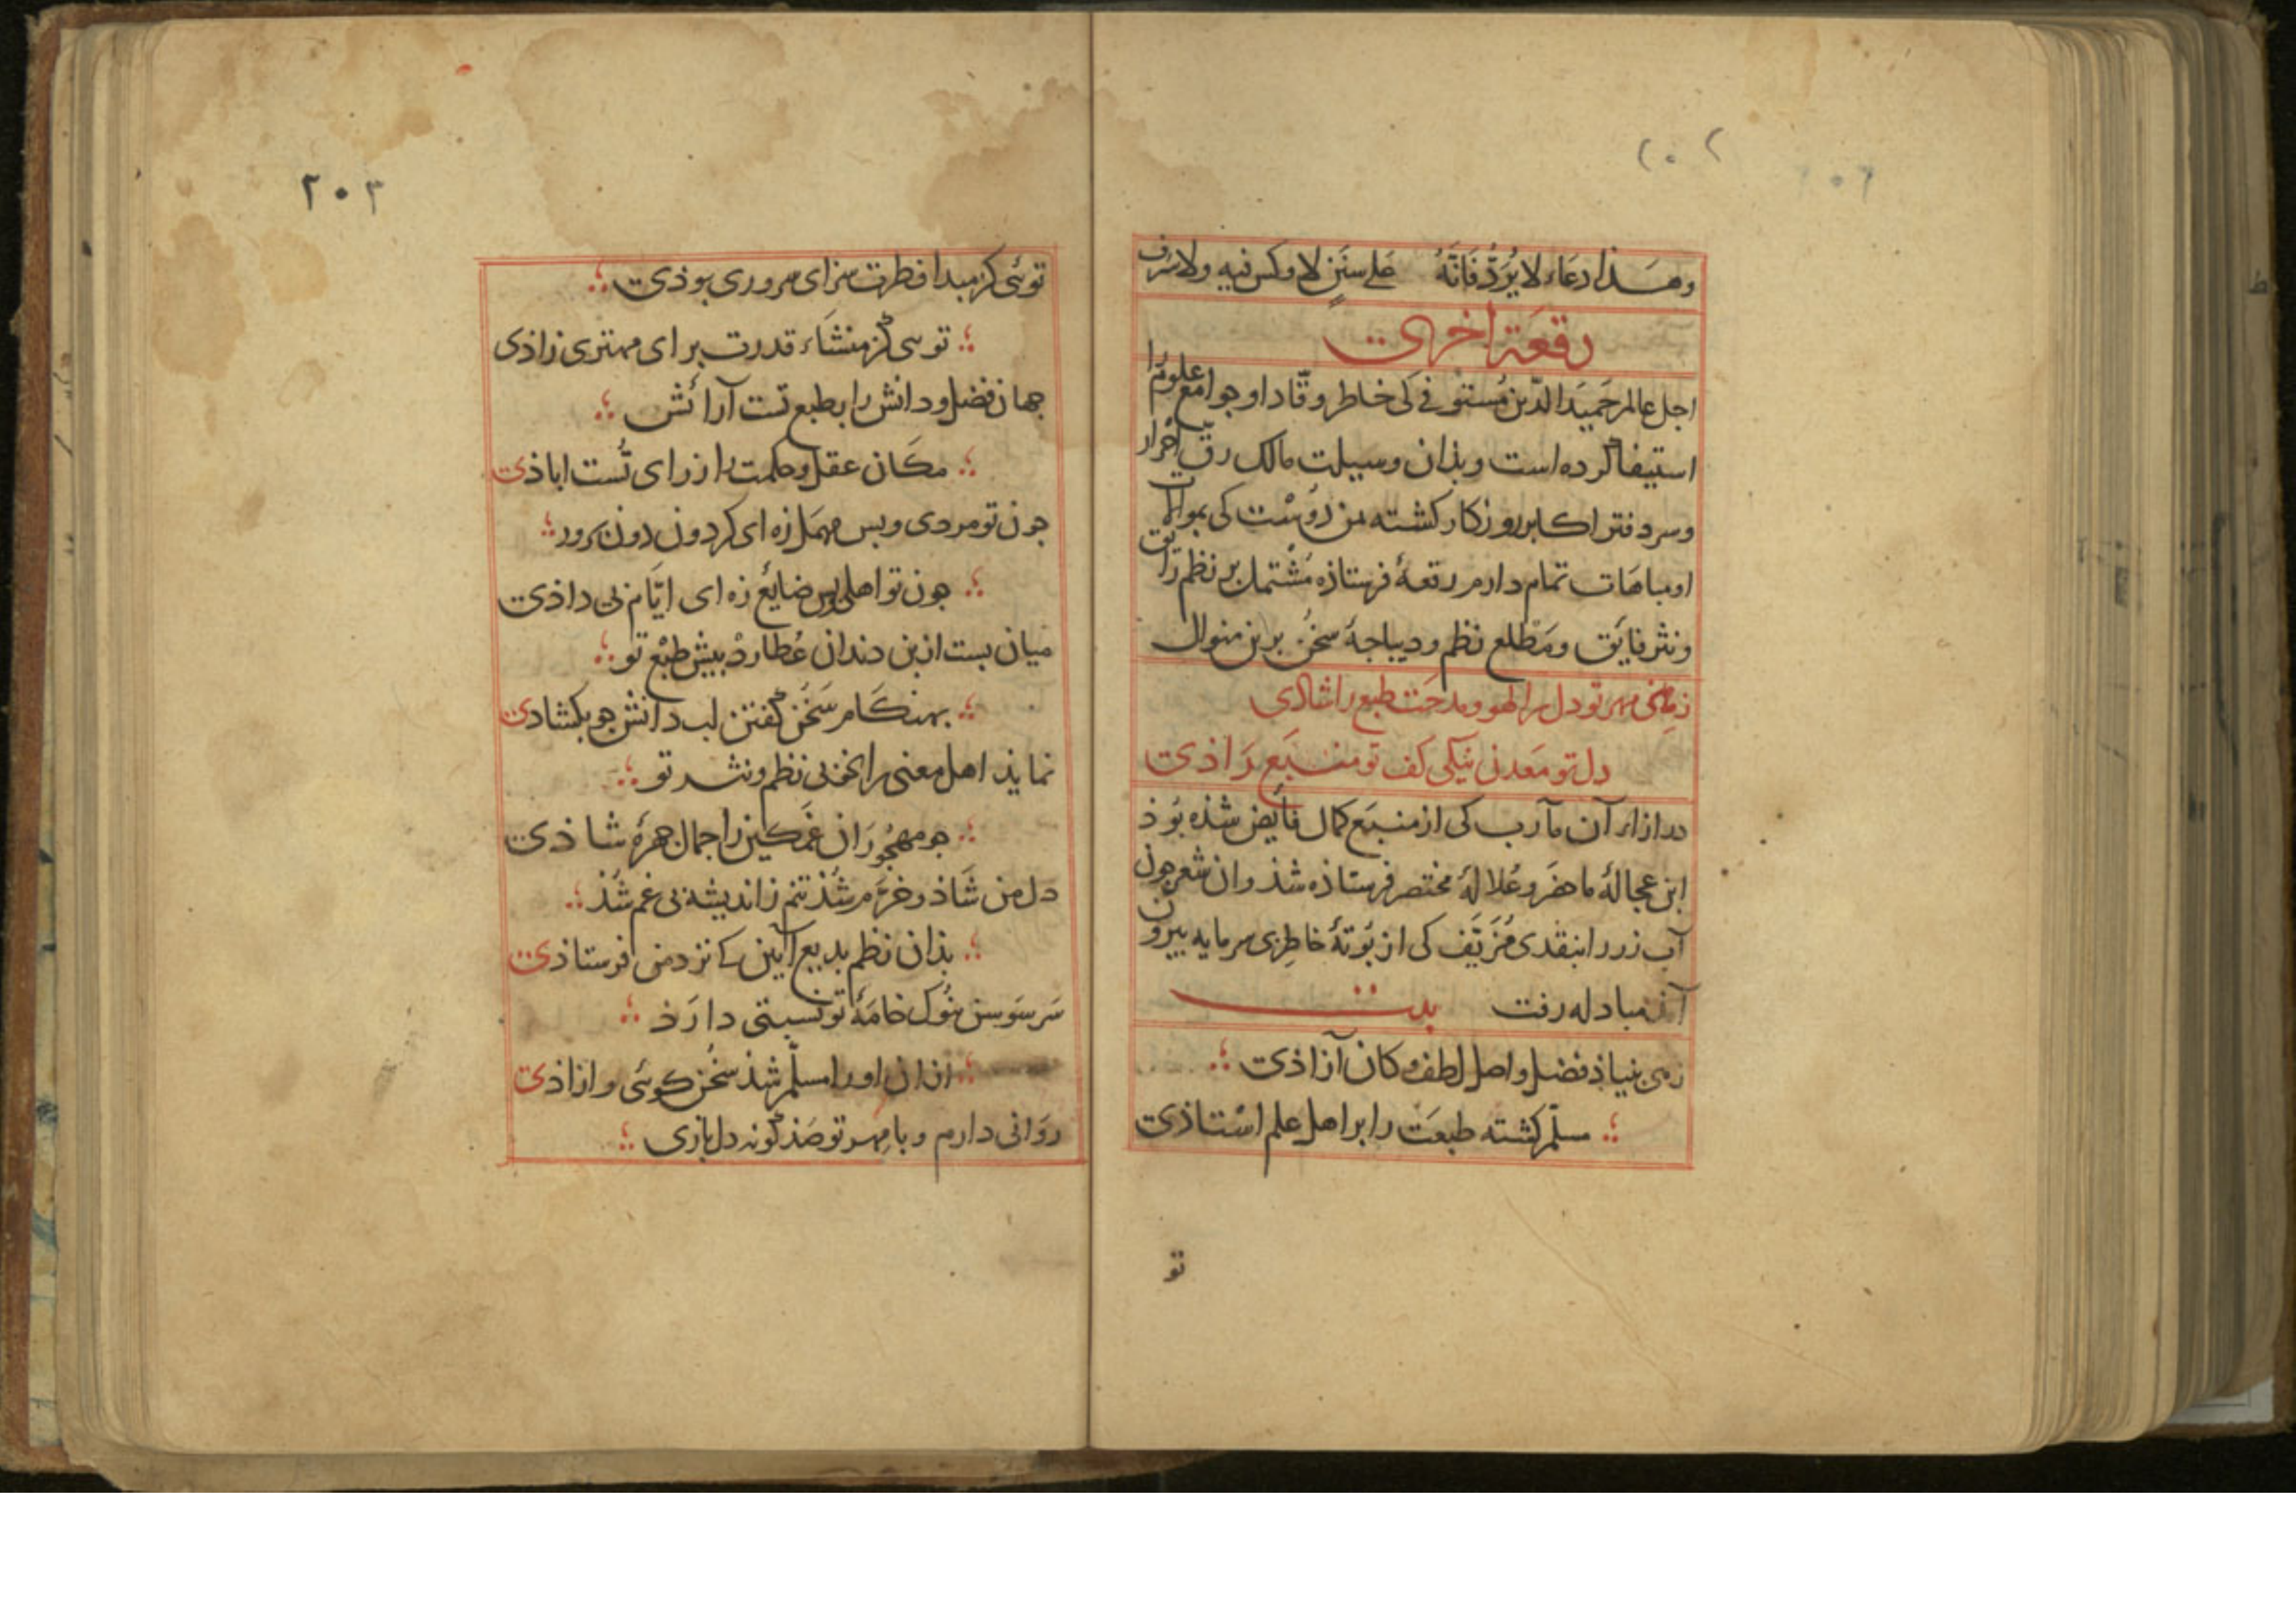 ۲۰۲
وهذا دعاء لا یُرَدُّ فَانَّهُ علی سَنَنٍ لا وکس فیه ولا سرف
رقعة اخری
اجل عالم حَمیدَ الدّین مُستوفی کی خاطر وقّاد او جوامع علوم را
استیفا کرده است و بذان وسیلت مالک رقّ احرار
و سر دفتر اکابر روزکار کشته بمن دوست کی بموالات
او مباهات تمام دارم رقعهٔ فرستاذه مُشتمل بر نظم رایق
و نثر فایق و مَطلع نظم و دیباجهٔ سخن برین منوال
زهی مهر تو دل را لهو و مدحت طبع را شادی
دل تو مَعدن نیکی کف تو منبَع رَاذی
در ازاء آن مآرب کی از منبَع کمال فایض شذه بوذ
این عجالهٔ ما حضر و عُلالهٔ مختصر فرستاذه شذ و ان شعر جون
آب زر را بنقدی مُزَیَّف کی از بُوتهٔ خاطر بی سرمایه بیرون
آمذ مبادله رفت بیت
زهی بنیاذ فضل و اصل لطف و کان آزاذی
مسلّم کشته طبعَت را بر اهل علم اسْتاذی
تو
۲۰۳
توئی کز مبدا فطرت سزای سروری بوذی
توئی کز منشاء قدرت برای مهتری زاذی
جهان فضل و دانش را بطبع تست آرائش
مکان عقل و حکمت را ز رای تُست اباذی
جون تو مردی و بس مهمَل زه ای کردون دون برور
جون تو اهلی و بس ضایع زه ای ایّام بی داذی
میان بست از بن دندان عُطارد بیش طبع تو
بهنکام سَخُن کفتن لب دانش جو بکشادی
نمایذ اهل معنی را نظم و نثر تو
جو مهجُورَان غمکین را جمال جهرهٔ شاذی
دل من شاذ و خرّم شُذ تنم ز اندیشه بی غم شُذ
بذان نظم بدیع آیین که نزد من فرستاذی
سَر سَوسن بنُوک خامَهٔ تو نسبتی دارَذ
از ان او را مسلّم شذ سُخن کوئی و ازاذی
رَوانی دارم و با مِهر تو صَذ کونه دل بازی